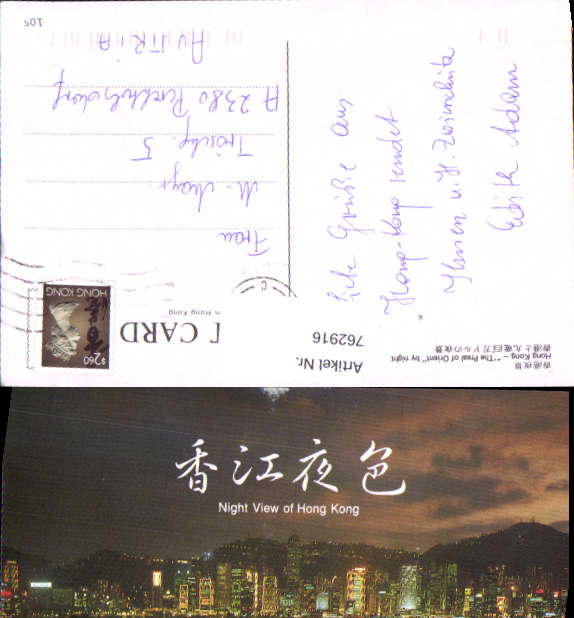 香港夜景
Hong Kong - "The Preal of Orient" by night
香港と九竜百万ドルの夜景
Artikel Nr.
762916
T CARD
in Hong Kong
HONG KONG
$2.60
Frau
M. Mayr
5
A 2380 Perchtoldsdorf
AUSTRIA
Grüße aus
Hong-Kong sendet
Ihnen u. H.
Edith Adam
105
香江夜色
Night View of Hong Kong